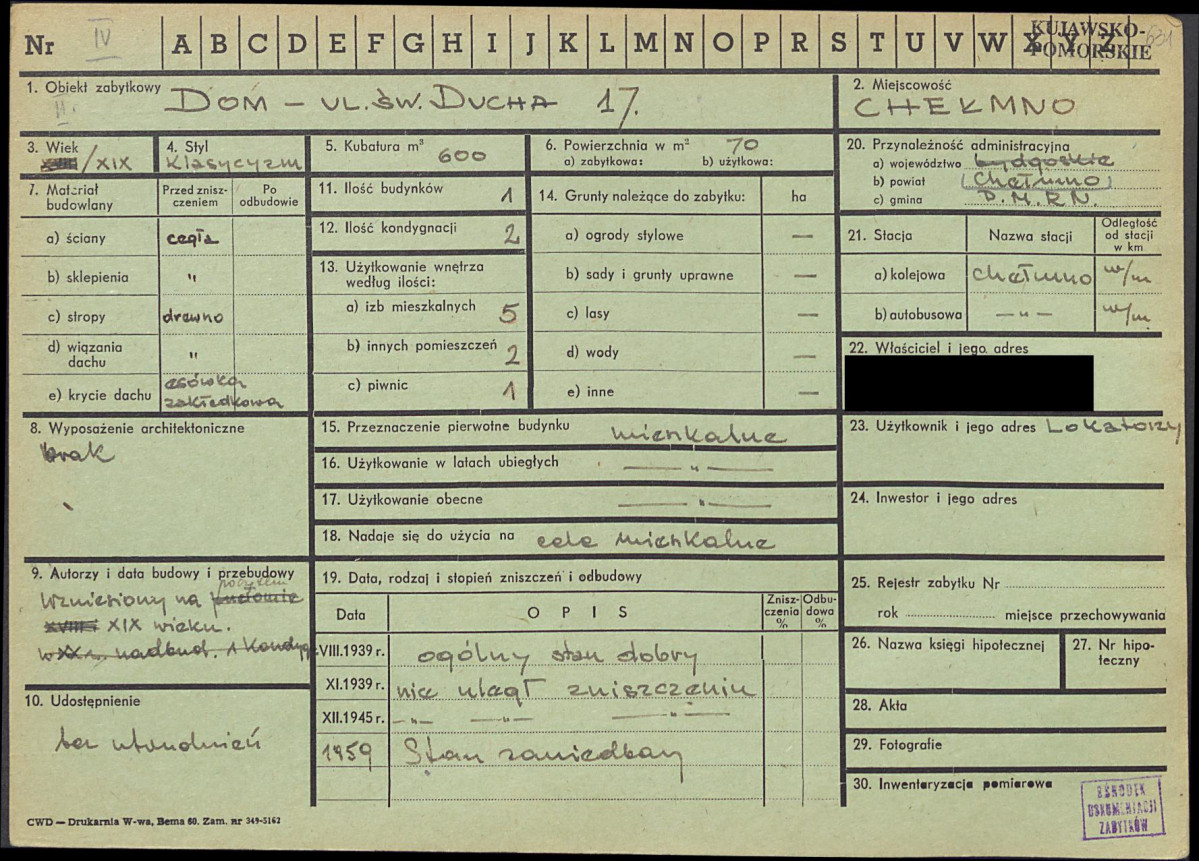 Nr IV A B C D E F G H I J K L M N O P R S T U V W X Y Z
KUJAWSKO-
POMORSKIE
631
1. Obiekt zabytkowy DOM - UL. ŚW. DUCHA 17.
II
2. Miejscowość
CHEŁMNO
3. Wiek
XVIII/XIX
4. Styl
Klasycyzm
5. Kubatura m³ 600
6. Powierzchnia w m² 70
a) zabytkowa: b) użytkowa:
20. Przynależność administracyjna
a) województwo bydgoskie
b) powiat (Chełmno)
c) gmina P.M.R.N.
7. Materiał budowlany
Przed znisz-czeniem
Po odbudowie
a) ściany cegła
b) sklepienia "
c) stropy drewno
d) wiązania dachu "
e) krycie dachu esówka zakładkowa
11. Ilość budynków 1
12. Ilość kondygnacji 2
13. Użytkowanie wnętrza według ilości:
a) izb mieszkalnych 5
b) innych pomieszczeń 2
c) piwnic 1
14. Grunty należące do zabytku: ha
a) ogrody stylowe —
b) sady i grunty uprawne —
c) lasy —
d) wody —
e) inne —
21. Stacja Nazwa stacji Odległość od stacji w km
a) kolejowa Chełmno w/m
b) autobusowa —"— w/m
22. Właściciel i jego adres
8. Wyposażenie architektoniczne
brak
15. Przeznaczenie pierwotne budynku mieszkalne
16. Użytkowanie w latach ubiegłych —"—
17. Użytkowanie obecne —"—
18. Nadaje się do użycia na cele mieszkalne
23. Użytkownik i jego adres Lokatorzy
24. Inwestor i jego adres
9. Autorzy i data budowy i przebudowy
Wzniesiony na
XVIII XIX wieku.
w XX w. nadbud. 1 Kondygn.
10. Udostępnienie
bez utrudnień
19. Data, rodzaj i stopień zniszczeń i odbudowy
Data OPIS Znisz-czenia % Odbu-dowa %
VIII.1939 r. ogólny stan dobry
XI.1939 r. nie uległ zniszczeniu
XII.1945 r. —"— —"— —"—
1959 Stan zaniedbany
25. Rejestr zabytku Nr
rok miejsce przechowywania
26. Nazwa księgi hipotecznej
27. Nr hipo-teczny
28. Akta
29. Fotografie
30. Inwentaryzacja pomiarowa
OŚRODEK
DOKUMENTACJI
ZABYTKÓW
CWD — Drukarnia W-wa, Bema 60. Zam. nr 349-5162